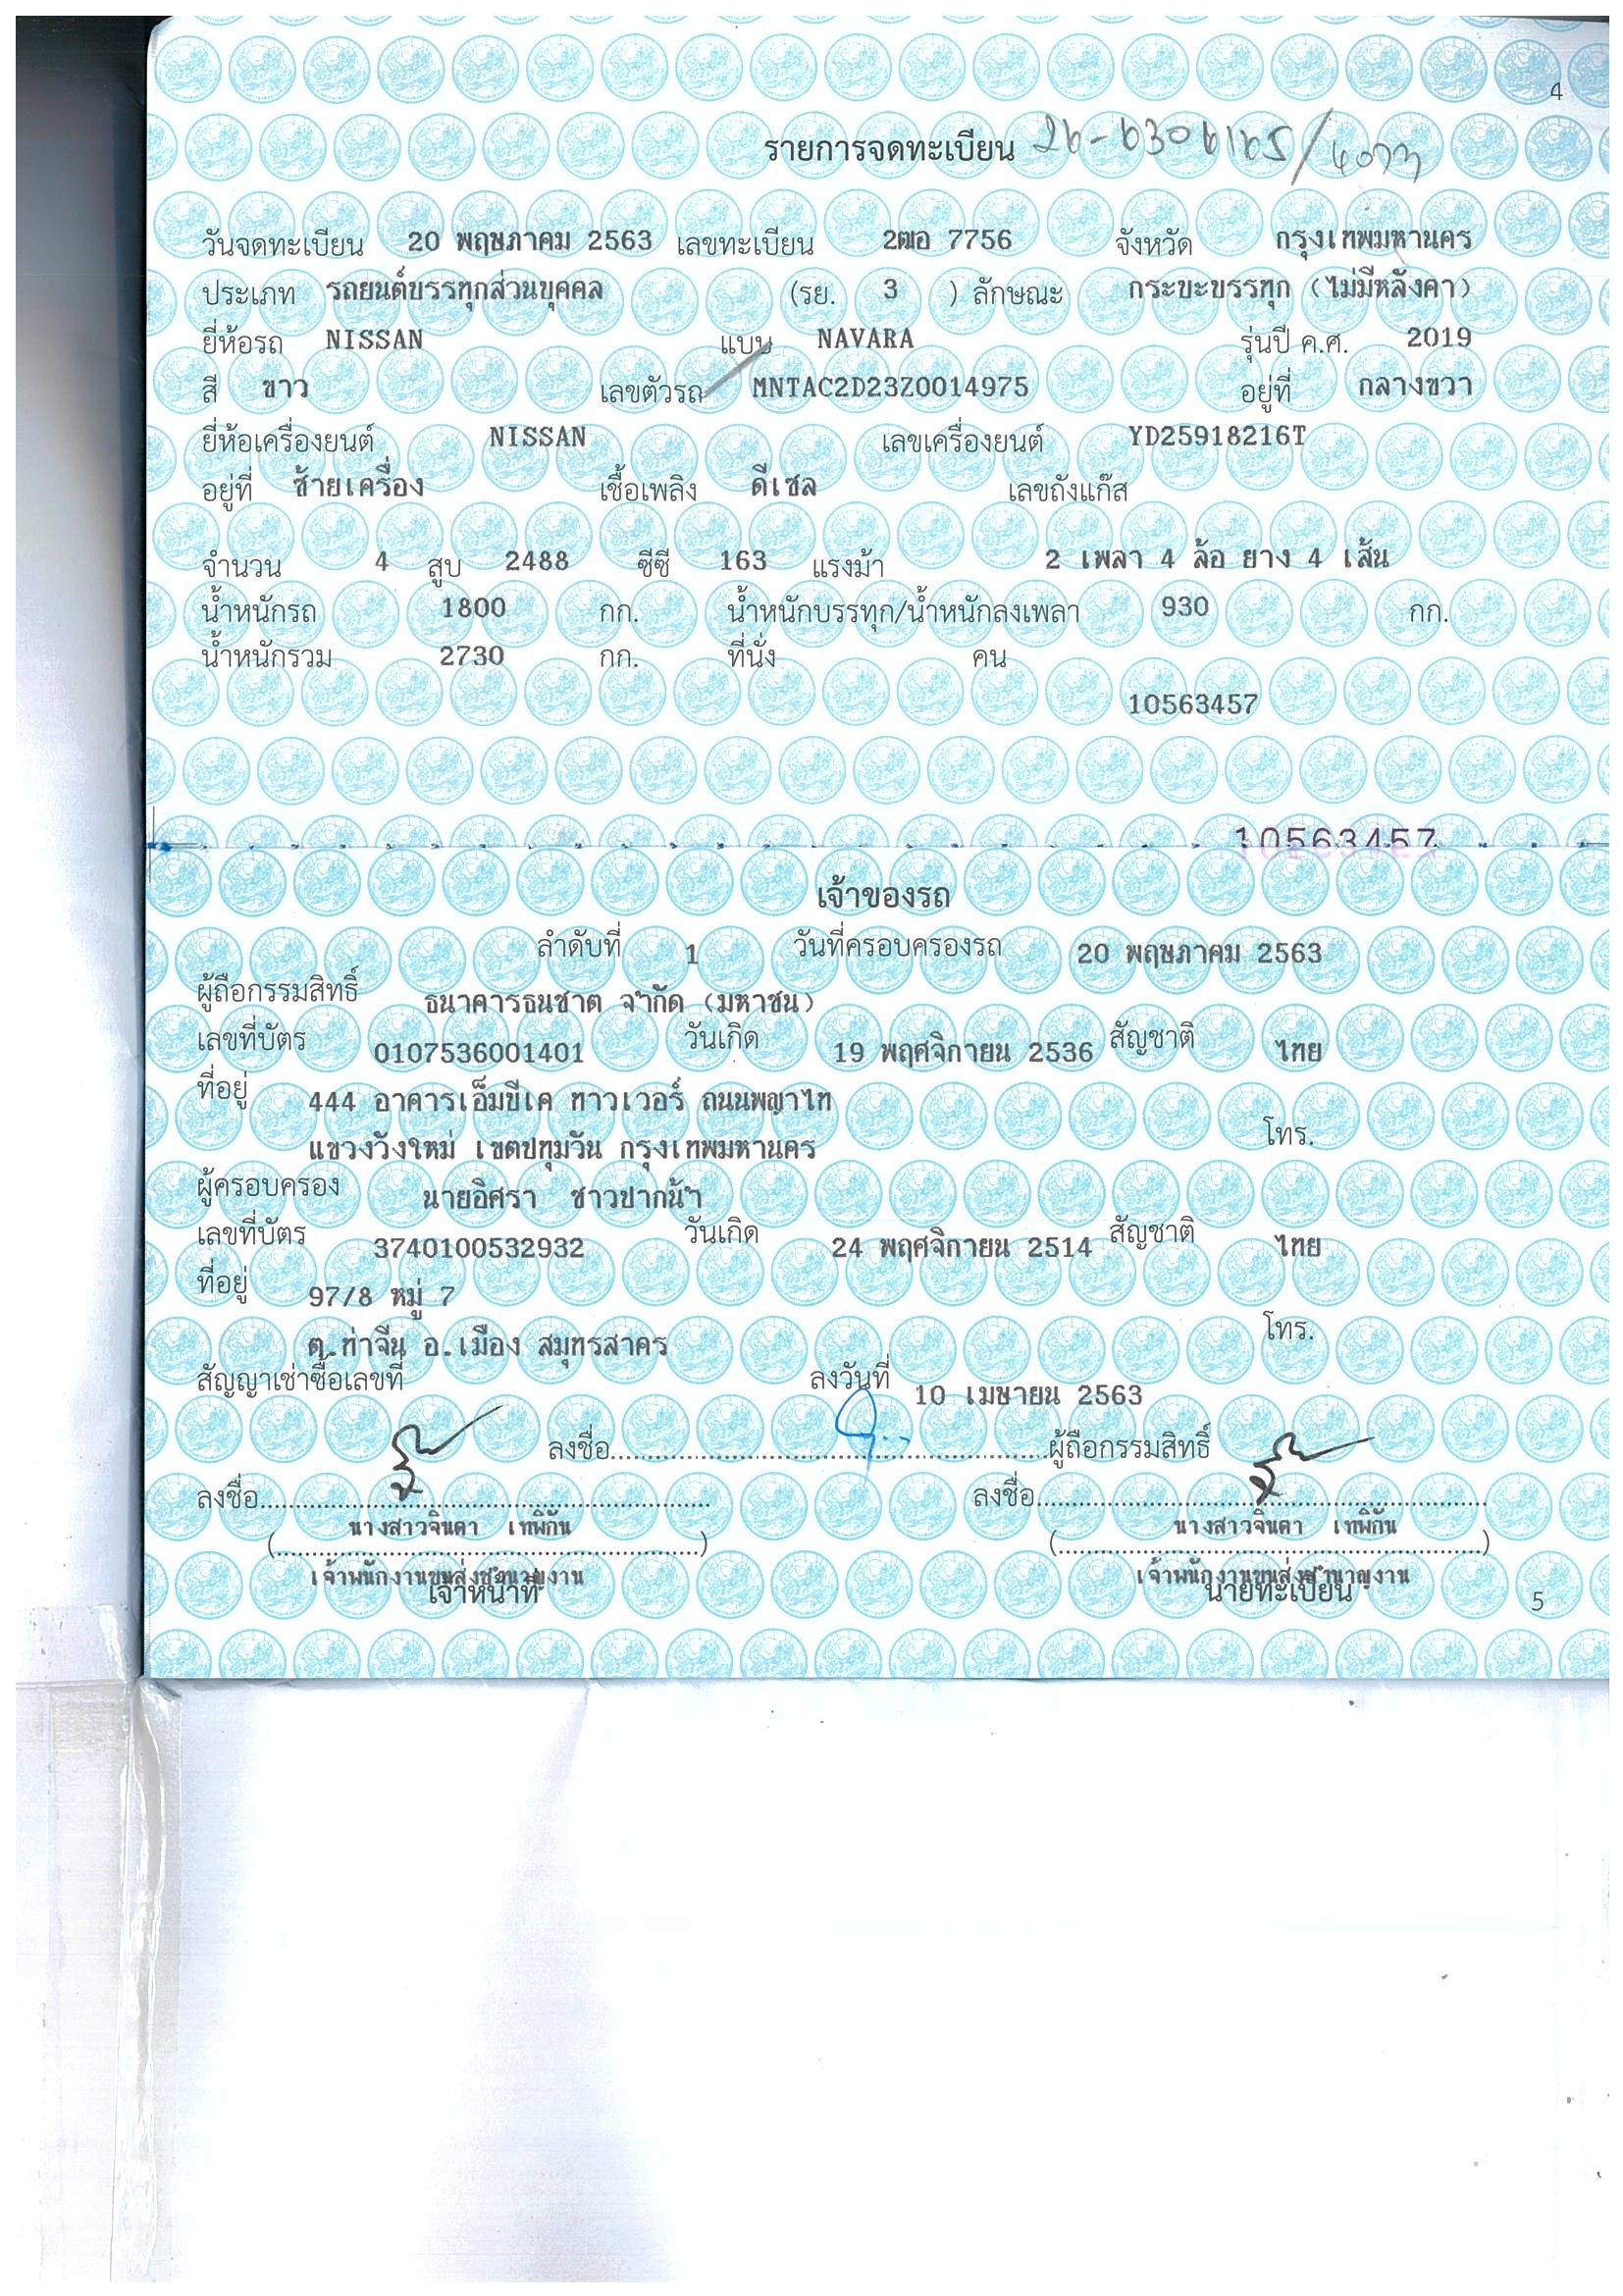 4
รายการจดทะเบียน 26-6306165/4073
วันจดทะเบียน 20 พฤษภาคม 2563 เลขทะเบียน 2ฒอ 7756 จังหวัด กรุงเทพมหานคร
ประเภท รถยนต์บรรทุกส่วนบุคคล (รย. 3 ) ลักษณะ กระบะบรรทุก (ไม่มีหลังคา)
ยี่ห้อรถ NISSAN แบบ NAVARA รุ่นปี ค.ศ. 2019
สี ขาว เลขตัวรถ MNTAC2D23Z0014975 อยู่ที่ กลางขวา
ยี่ห้อเครื่องยนต์ NISSAN เลขเครื่องยนต์ YD25918216T
อยู่ที่ ซ้ายเครื่อง เชื้อเพลิง ดีเซล เลขถังแก๊ส
จำนวน 4 สูบ 2488 ซีซี 163 แรงม้า 2 เพลา 4 ล้อ ยาง 4 เส้น
น้ำหนักรถ 1800 กก. น้ำหนักบรรทุก/น้ำหนักลงเพลา 930 กก.
น้ำหนักรวม 2730 กก. ที่นั่ง คน
10563457
10563457
เจ้าของรถ
ลำดับที่ 1 วันที่ครอบครองรถ 20 พฤษภาคม 2563
ผู้ถือกรรมสิทธิ์ ธนาคารธนชาต จำกัด (มหาชน)
เลขที่บัตร 0107536001401 วันเกิด 19 พฤศจิกายน 2536 สัญชาติ ไทย
ที่อยู่ 444 อาคารเอ็มบีเค ทาวเวอร์ ถนนพญาไท
แขวงวังใหม่ เขตปทุมวัน กรุงเทพมหานคร โทร.
ผู้ครอบครอง นายอิศรา ชาวปากน้ำ
เลขที่บัตร 3740100532932 วันเกิด 24 พฤศจิกายน 2514 สัญชาติ ไทย
ที่อยู่ 97/8 หมู่ 7
ต.ท่าจีน อ.เมือง สมุทรสาคร โทร.
สัญญาเช่าซื้อเลขที่ ลงวันที่ 10 เมษายน 2563
ลงชื่อ ผู้ถือกรรมสิทธิ์
ลงชื่อ ลงชื่อ
(นางสาวจินดา เทพิกัน) (นางสาวจินดา เทพิกัน)
เจ้าพนักงานขนส่งชำนาญงาน เจ้าพนักงานขนส่งชำนาญงาน
เจ้าหน้าที่ นายทะเบียน 5